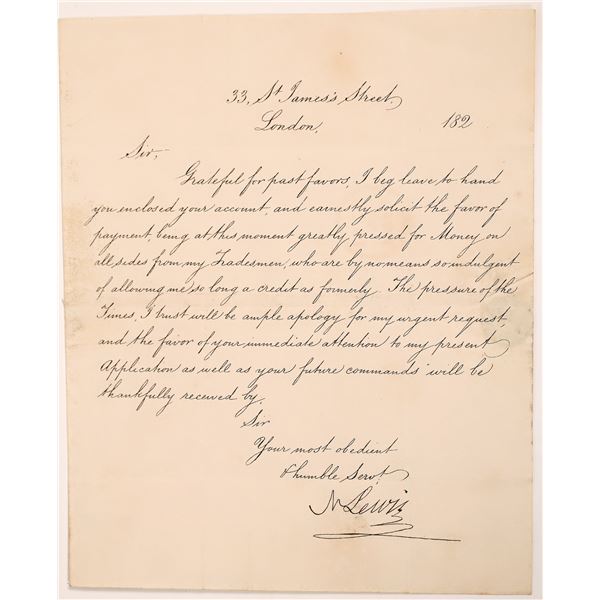 33, St James's Street,
London, 182
Sir,
Grateful for past favors, I beg leave to hand
you enclosed your account, and earnestly solicit the favor of
payment, being at this moment greatly pressed for Money on
all sides from my Tradesmen, who are by no means so indulgent
of allowing me so long a credit as formerly. The pressure of the
Times, I trust will be ample apology for my urgent request,
and the favor of your immediate attention to my present
Application as well as your future commands will be
thankfully received by,
Sir
Your most obedient
& humble Servt.
N Lewis